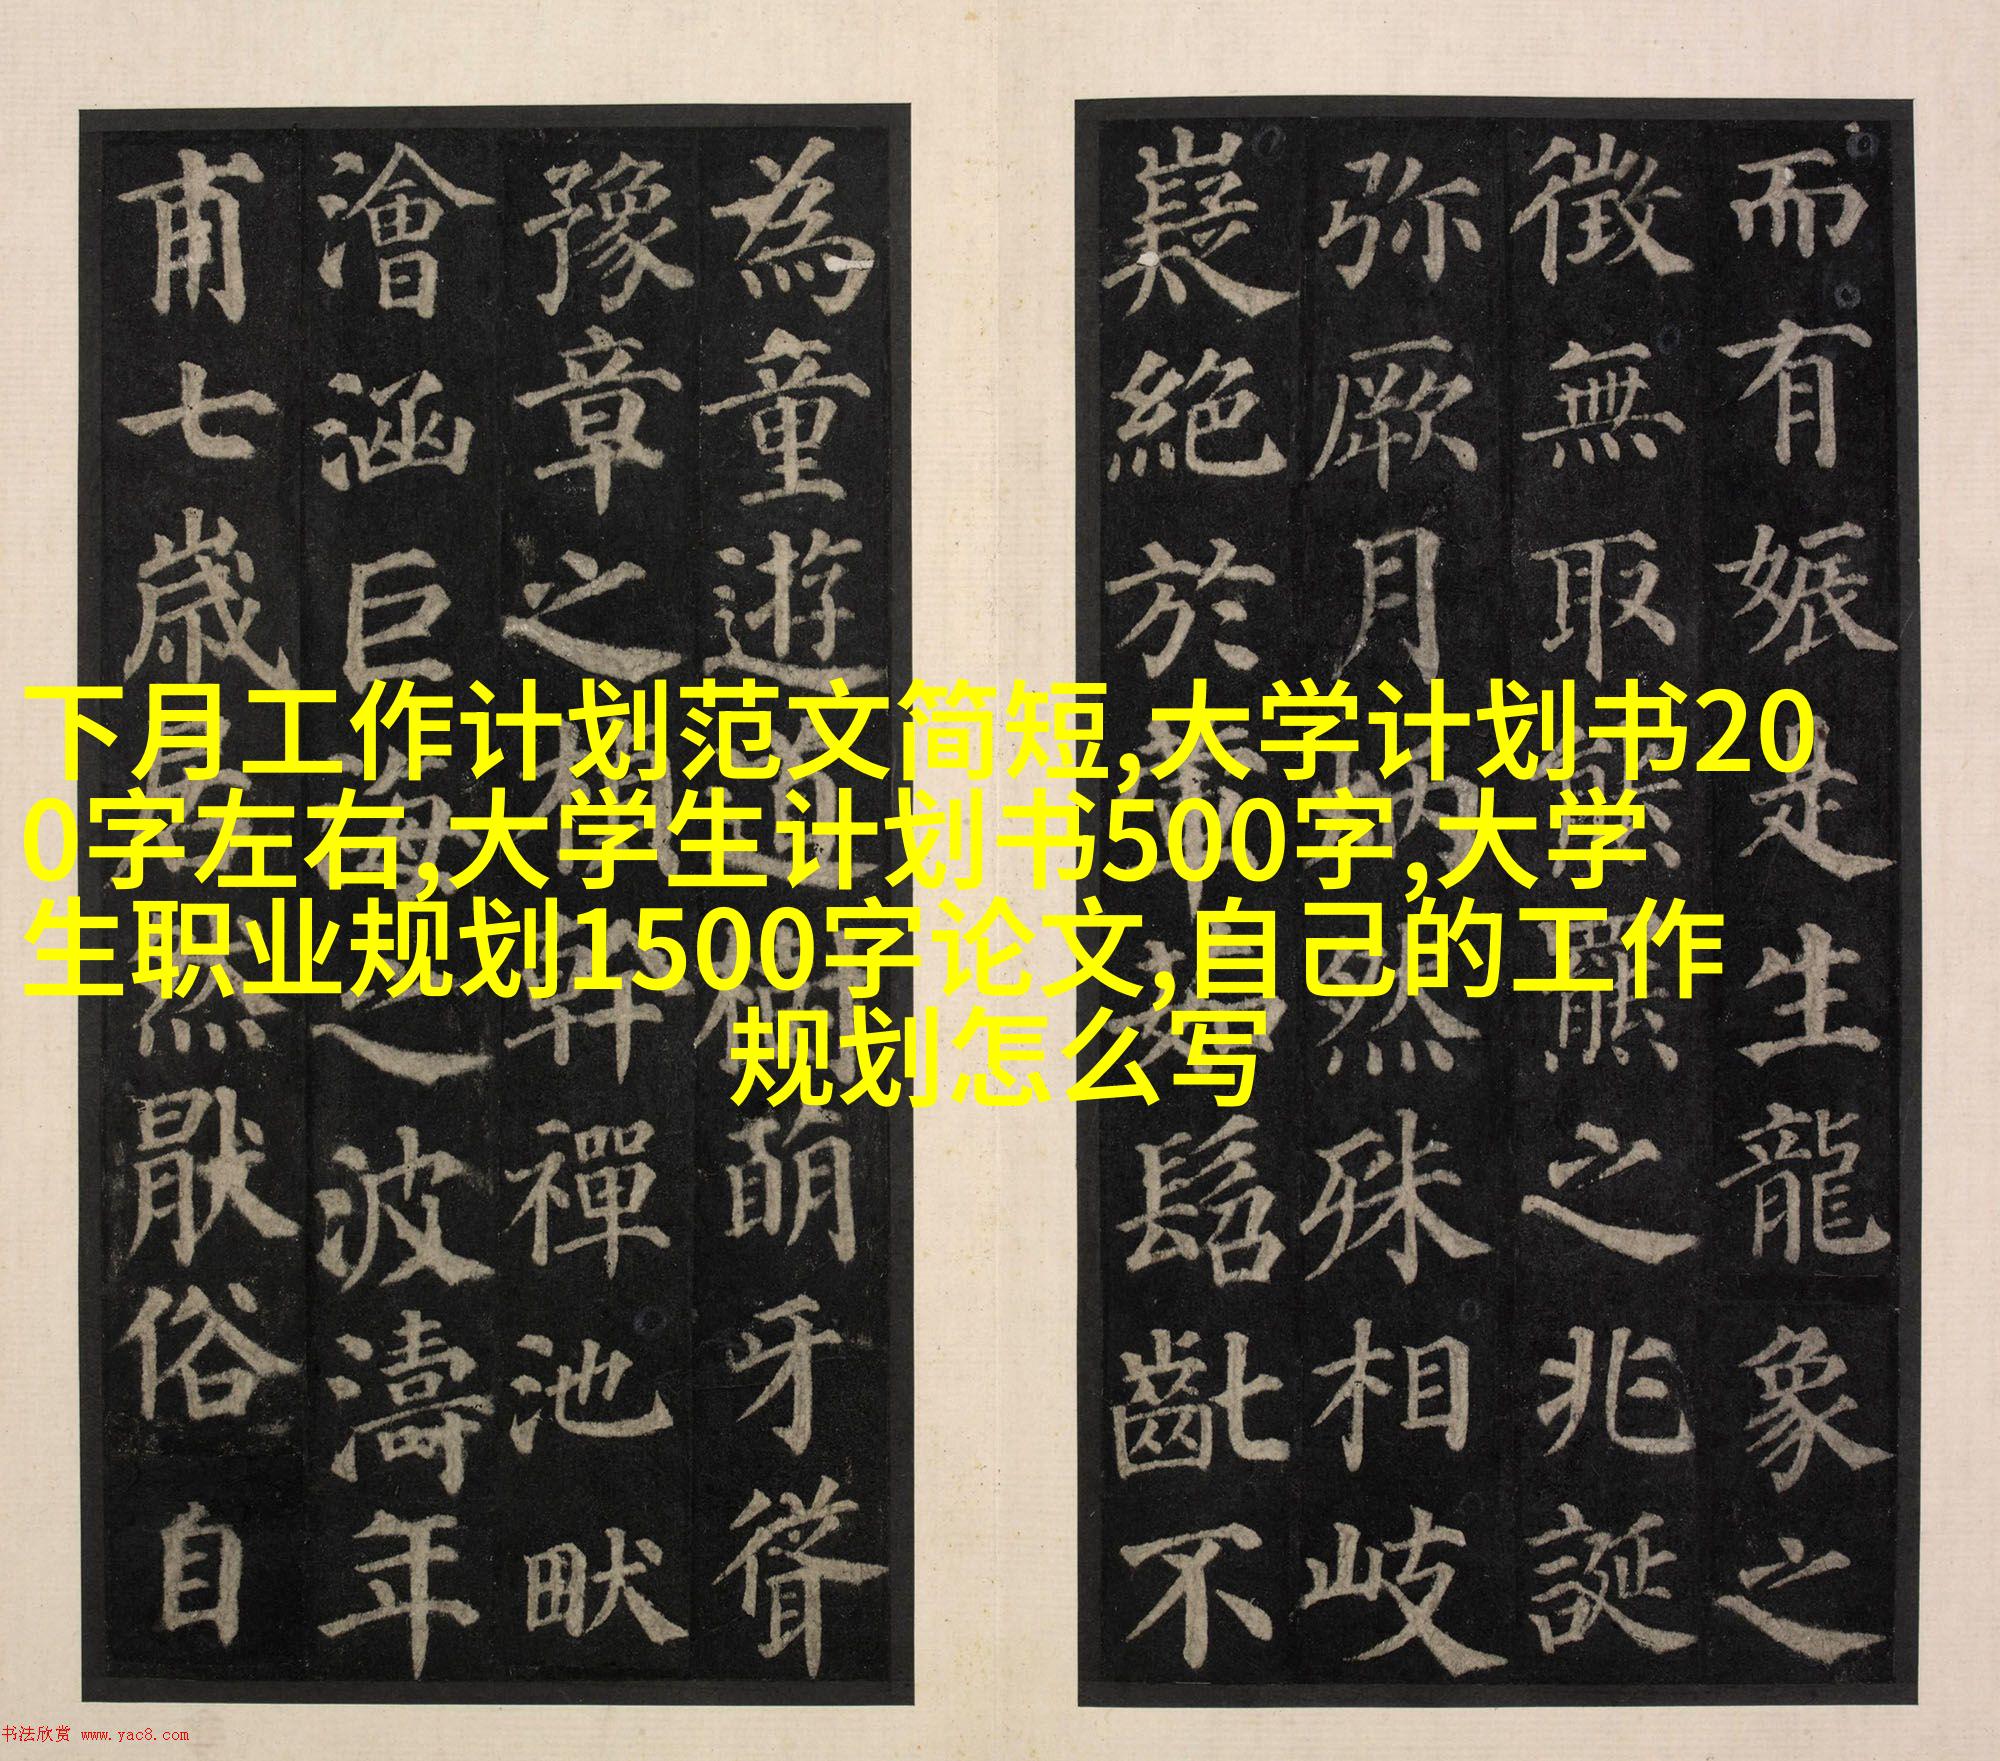 而有娠是生龍象之
徵無取熊羆之兆誕
弥厥月炳然殊相岐
嶷絕於葷茹髫齓不
為童遊道樹萌牙聳
豫章之楨幹禪池畎
澮涵巨海之波濤年
甫七歲居然猒俗自
下月工作计划范文简短,大学计划书20
0字左右,大学生计划书500字,大学
生职业规划1500字论文,自己的工作
规划怎么写
书法欣赏 www.yac8.com